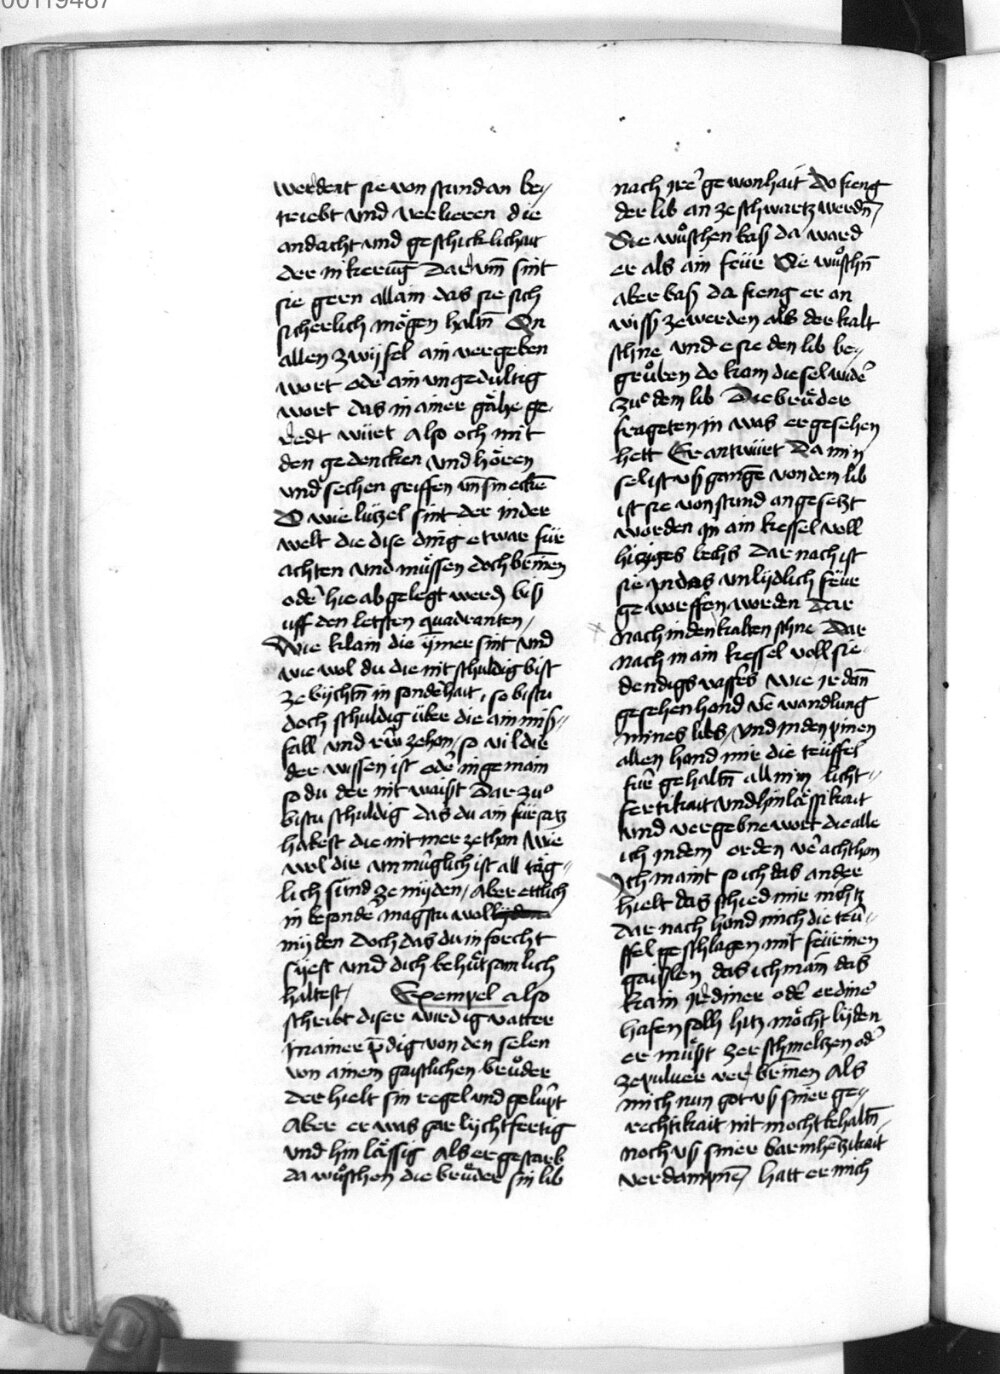 00119487
werdent sie von stund an be⸗
triebt vnd verlieren die
andacht vnd geschicklichait
der in kerung̅ Darvm̅ sint
sie gern allain das sie sich
sicherlich mögen haltn̅ On
allen zwÿfel ain vergeben
wort oder ain vngedultig
wort das in ainer gähe ge⸗
redt würt Also och mit
den gedencken vnd hören
vnd sechen griffen vn̅ smecke̅
O wie lützel sint der in der
welt die dise ding etwar für
achten vnd müssen doch brinnen
oder hie abgelegt werdn̅ biß
uff den letsten quadranten /
Wie klain die ymer sint vnd
wie wol du die nit schuldig bist
ze bÿchtn̅ in sonderhait / so bistu
doch schuldig über die ain miß⸗
fall vnd rüw zehon / so vil die
der wissen ist oder in gemain
so du der nit waist Dar zuo
bistu schuldig das du ain fürsatz
habest die nit mer ze thon Wie
wol die vnmüglich ist all täg⸗
lich sünd ze mÿden / Aber ettlich
in besonder magstu wol
mÿden Doch das du in forcht
sÿest vnd dich behütsamlich
haltest / Exempel also
schribt diser wirdig vatter
in ainer p̅dig von den selen
von ainem gaistlichen brůder
Der hielt sin regel vnd gelüpt
Aber er was gar lÿchtfertig
vnd hinlässig Als er gestarb
da wůschen die brüder sin lib
nach irer gewonhait Do fieng
der lib an ze schwartz werdn̅ /
Sie wůschen baß da ward
er als ain feür Sie wůschn̅
aber baß da fieng er an
wiss ze werden als der kalt
schne vnd e sie den lib be⸗
grůben do kam die sel wider
zuo dem lib Die brüder
frageten in was er gesehen
hett Er antwürt Da min
sel ist uß gangen von dem lib
ist sie von stund an gesetzt
worden in ain kessel voll
hitziges bechs Dar nach ist
sie in das unlÿdlich feür
geworffen worden Dar
nach in den kalten schne Dar
nach in ain kessel voll sie⸗
dendigs wassers wie ir dan̅
gesehen hond ver wandlung
mines libs / Vnd in den pinen
allen hond mir die teüffel
für gehaltn̅ all min licht⸗
fertikait vnd hinlässikait
vnd vergebne wort die alle
ich in dem orden verachthon
Ich maint so ich das ander
hielt das schied mir nichtz
Dar nach hond mich die teü⸗
ffel geschlagen mit feürinen
gaißlen das ich main das
kain irdiner oder erdiner
hafen sollh hitz möcht lÿden
er müßt zerschmeltzen oder
ze puluer verbrinnen Als
mich nun got uß siner ge⸗
rechtikait nit mocht behaltn̅ /
noch uß siner barmhertzikait
verdampnen / hatt er mich